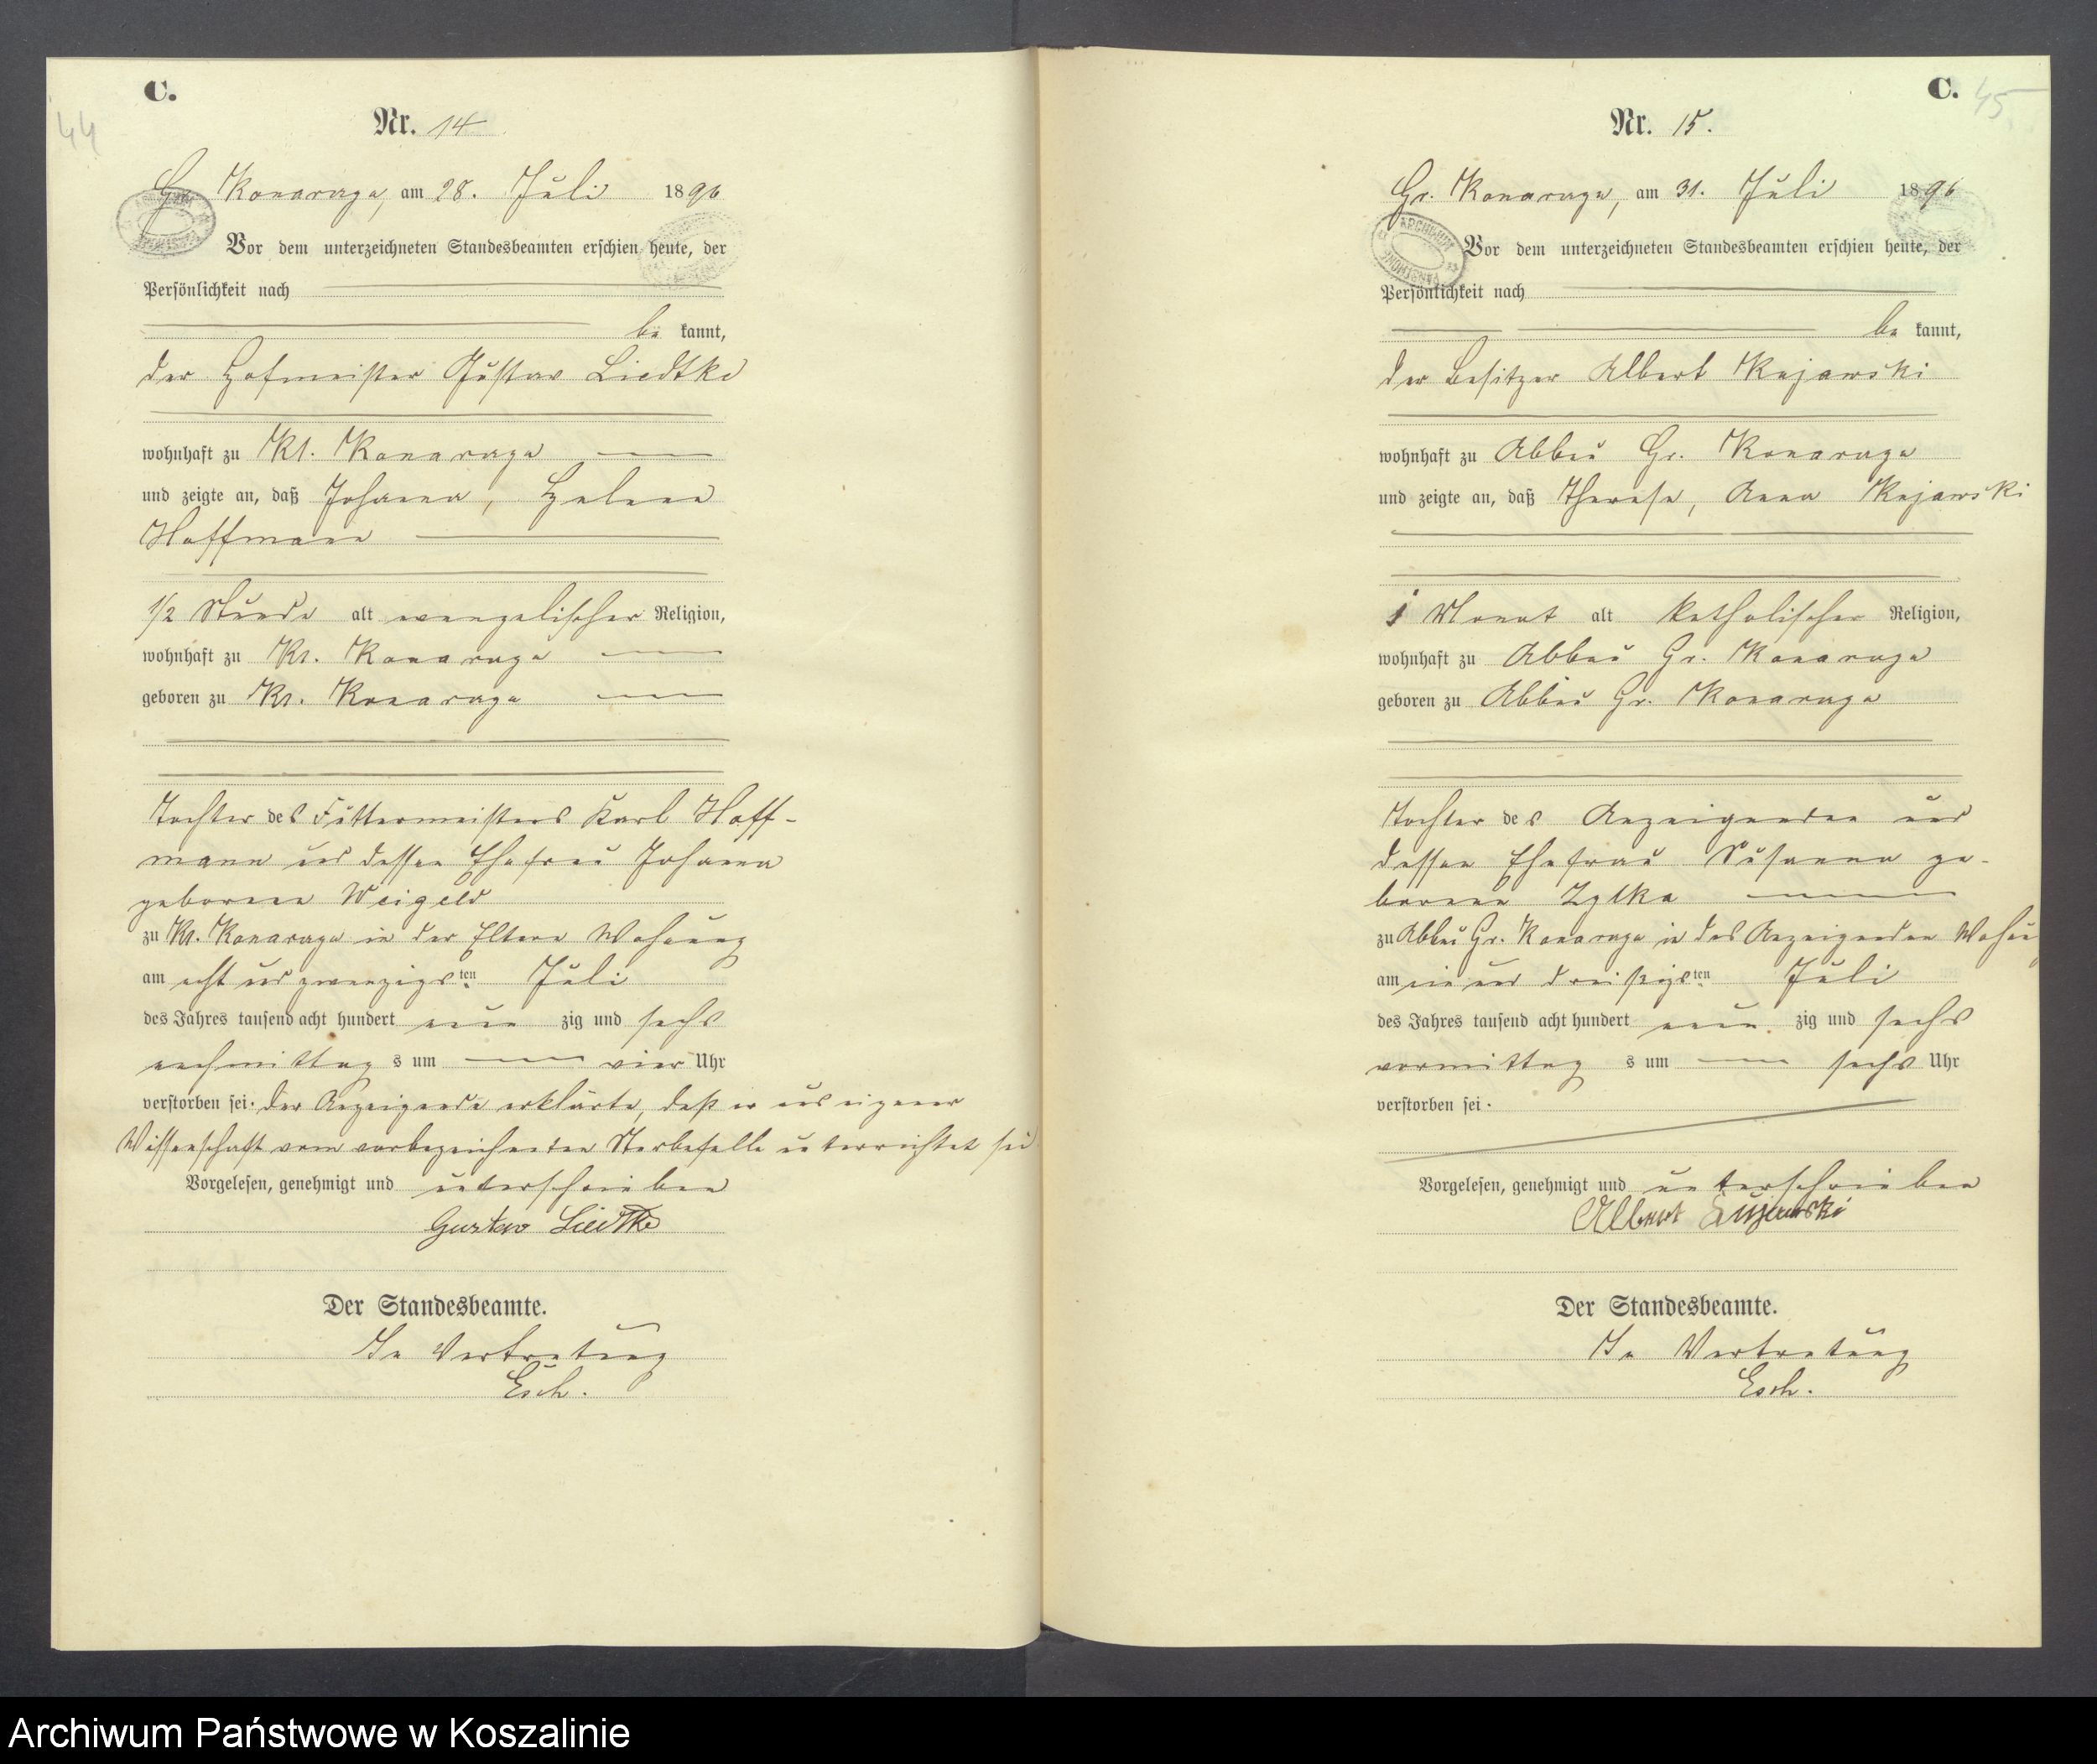 44
C.
Nr. 14
Gr. Konarzyn, am 28. Juli 1896
Vor dem unterzeichneten Standesbeamten erschien heute, der
Persönlichkeit nach
be kannt,
der Hofmeister Gustav Liedtke
wohnhaft zu Kl. Konarzyn
und zeigte an, daß Johanna, Helene
Hoffmann
1/2 Stunde alt evangelischer Religion,
wohnhaft zu Kl. Konarzyn
geboren zu Kl. Konarzyn
Tochter des Füttermeisters Karl Hoff-
mann und dessen Ehefrau Johanna
geborene Weigeld
zu Kl. Konarzyn in der Eltern Wohnung
am acht und zwanzigsten Juli
des Jahres tausend acht hundert neun zig und sechs
nachmittag s um vier Uhr
verstorben sei. Der Anzeigende erklärte, daß er aus eigener
Wissenschaft vom vorbezeichneten Sterbefalle unterrichtet sei
Vorgelesen, genehmigt und unterschrieben
Gustav Liedtke
Der Standesbeamte.
In Vertretung
Esch.
C. 45
Nr. 15.
Gr. Konarzyn, am 31. Juli 1896
ARCHIWUM PAŃSTWOWE
Vor dem unterzeichneten Standesbeamten erschien heute, der
Persönlichkeit nach
be kannt,
der Besitzer Albert Kujawski
wohnhaft zu Abbau Gr. Konarzyn
und zeigte an, daß Therese, Anna Kujawski
1 Monat alt katholischer Religion,
wohnhaft zu Abbau Gr. Konarzyn
geboren zu Abbau Gr. Konarzyn
Tochter des Anzeigenden und
dessen Ehefrau Susanna ge-
borene Zylka
zu Abbau Gr. Konarzyn in des Anzeigenden Wohnung
am ein und dreißigsten Juli
des Jahres tausend acht hundert neun zig und sechs
vormittag s um sechs Uhr
verstorben sei.
Vorgelesen, genehmigt und unterschrieben
Albert Kujawski
Der Standesbeamte.
In Vertretung
Esch.
Archiwum Państwowe w Koszalinie